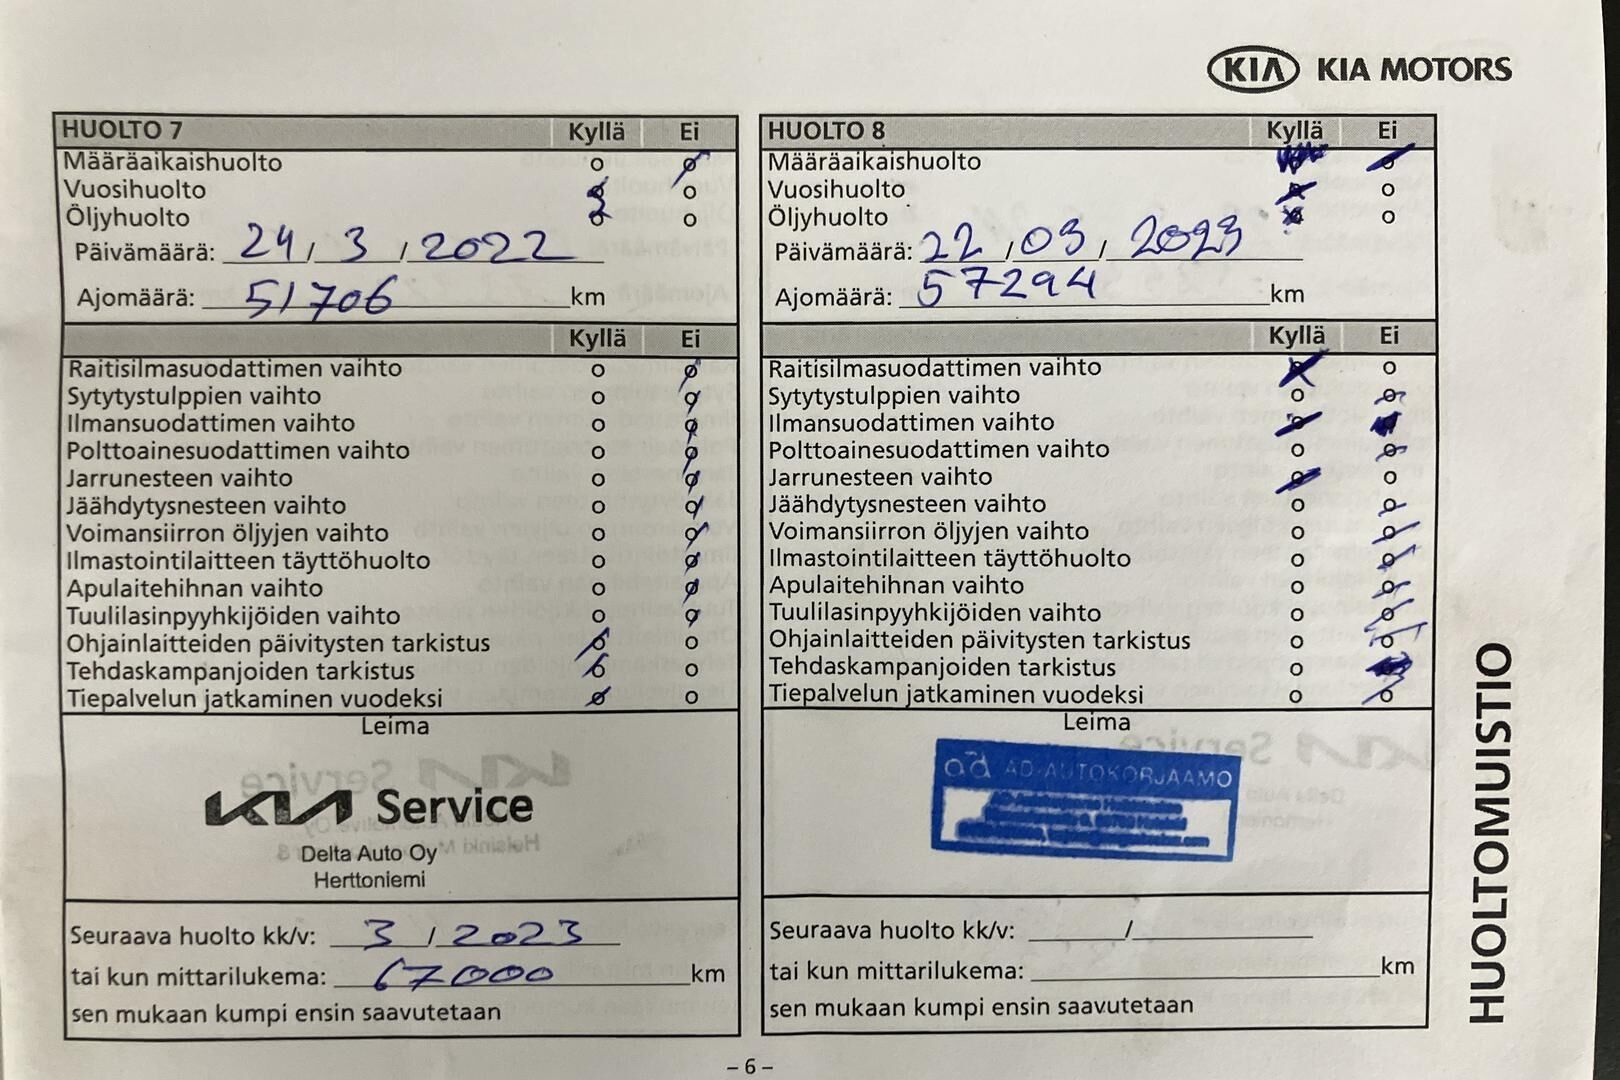 KIA KIA MOTORS
HUOLTO 7 Kyllä Ei
Määräaikaishuolto
Vuosihuolto
Öljyhuolto
Päivämäärä: 24 / 3 / 2022
Ajomäärä: 51706 km
Kyllä Ei
Raitisilmasuodattimen vaihto
Sytytystulppien vaihto
Ilmansuodattimen vaihto
Polttoainesuodattimen vaihto
Jarrunesteen vaihto
Jäähdytysnesteen vaihto
Voimansiirron öljyjen vaihto
Ilmastointilaitteen täyttöhuolto
Apulaitehihnan vaihto
Tuulilasinpyyhkijöiden vaihto
Ohjainlaitteiden päivitysten tarkistus
Tehdaskampanjoiden tarkistus
Tiepalvelun jatkaminen vuodeksi
Leima
KIA Service
Delta Auto Oy
Herttoniemi
Seuraava huolto kk/v: 3 / 2023
tai kun mittarilukema: 67000 km
sen mukaan kumpi ensin saavutetaan
HUOLTO 8 Kyllä Ei
Määräaikaishuolto
Vuosihuolto
Öljyhuolto
Päivämäärä: 22 / 03 / 2023
Ajomäärä: 57294 km
Kyllä Ei
Raitisilmasuodattimen vaihto
Sytytystulppien vaihto
Ilmansuodattimen vaihto
Polttoainesuodattimen vaihto
Jarrunesteen vaihto
Jäähdytysnesteen vaihto
Voimansiirron öljyjen vaihto
Ilmastointilaitteen täyttöhuolto
Apulaitehihnan vaihto
Tuulilasinpyyhkijöiden vaihto
Ohjainlaitteiden päivitysten tarkistus
Tehdaskampanjoiden tarkistus
Tiepalvelun jatkaminen vuodeksi
Leima
ad AD-AUTOKORJAAMO
Seuraava huolto kk/v: /
tai kun mittarilukema: km
sen mukaan kumpi ensin saavutetaan
HUOLTOMUISTIO
– 6 –